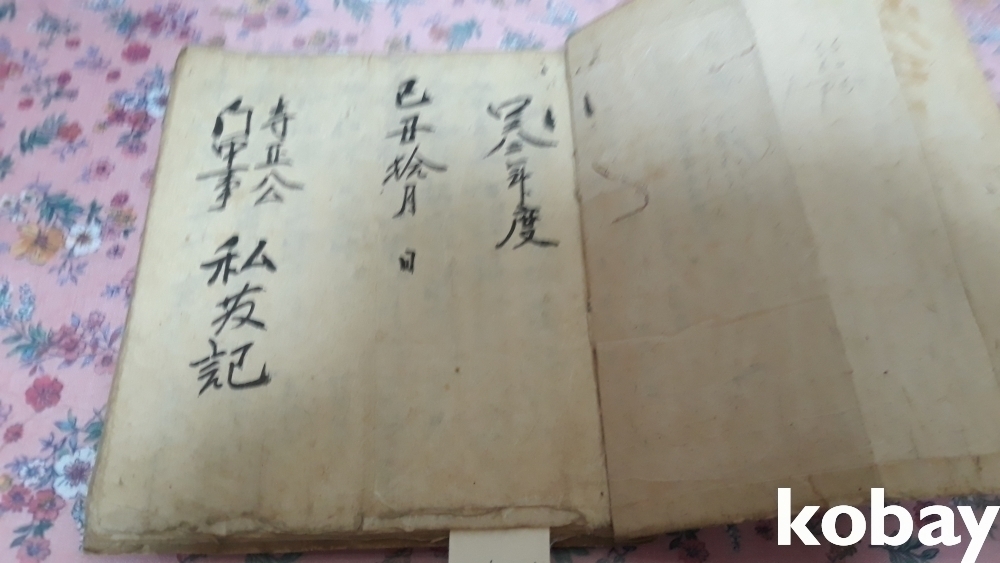 年度
己丑拾月 日
寺正公
門中事
私艾記
kobay